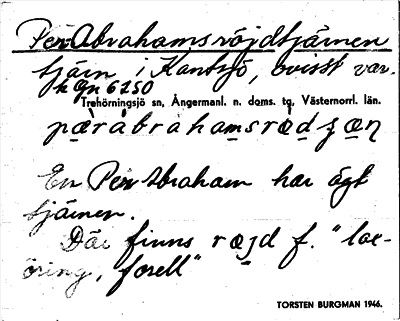 Per-Abrahamsröjdtjärnen
tjärn i Kantsjö, ovisst var.
k Gn 6250
Trehörningsjö sn, Ångermanl. n. doms. tg. Västernorrl. län.
En Per Abraham har ägt
tjärnen.
Där finns ræjd f. "lae-
öring, forell"
TORSTEN BURGMAN 1946.